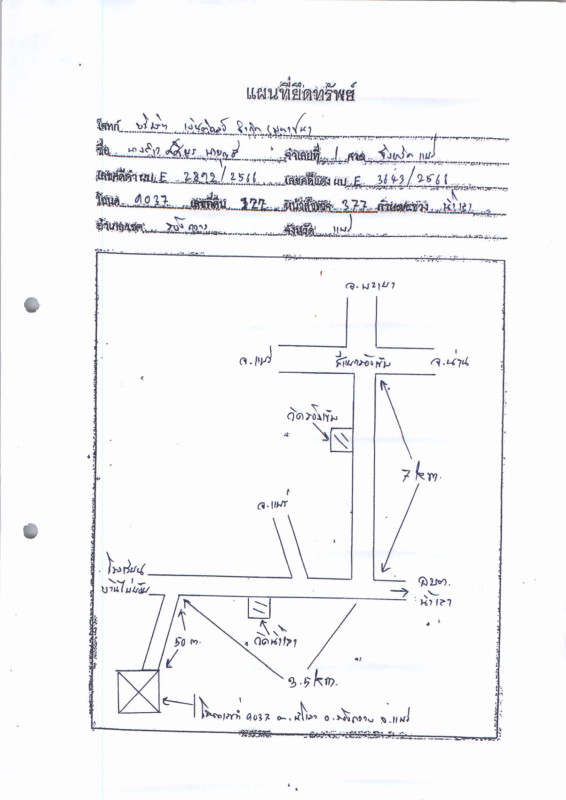 แผนที่ยึดทรัพย์
โจทก์ บริษัท เงินติดล้อ จำกัด (มหาชน)
ชื่อ จำเลยที่ 1 ศาล จังหวัดแพร่
เลขคดีดำ ผบ.E 2892/2566 เลขคดีแดง ผบ.E 3643/2566
โฉนด 9037 เลขที่ดิน 177 หน้าสำรวจ 377 ตำบล/แขวง น้ำเลา
อำเภอ/เขต ร้องกวาง จังหวัด แพร่
จ.พะเยา
จ.แพร่ สี่แยกร้องเข็ม จ.น่าน
วัดร้องเข็ม
7 km.
จ.แพร่
โรงเรียน
บ้านไผ่ย้อย
อบต.
น้ำเลา
50 m.
วัดน้ำเลา
3.5 km.
โฉนดเลขที่ 9037 ต.น้ำเลา อ.ร้องกวาง จ.แพร่